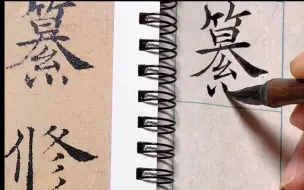 纂
修
纂